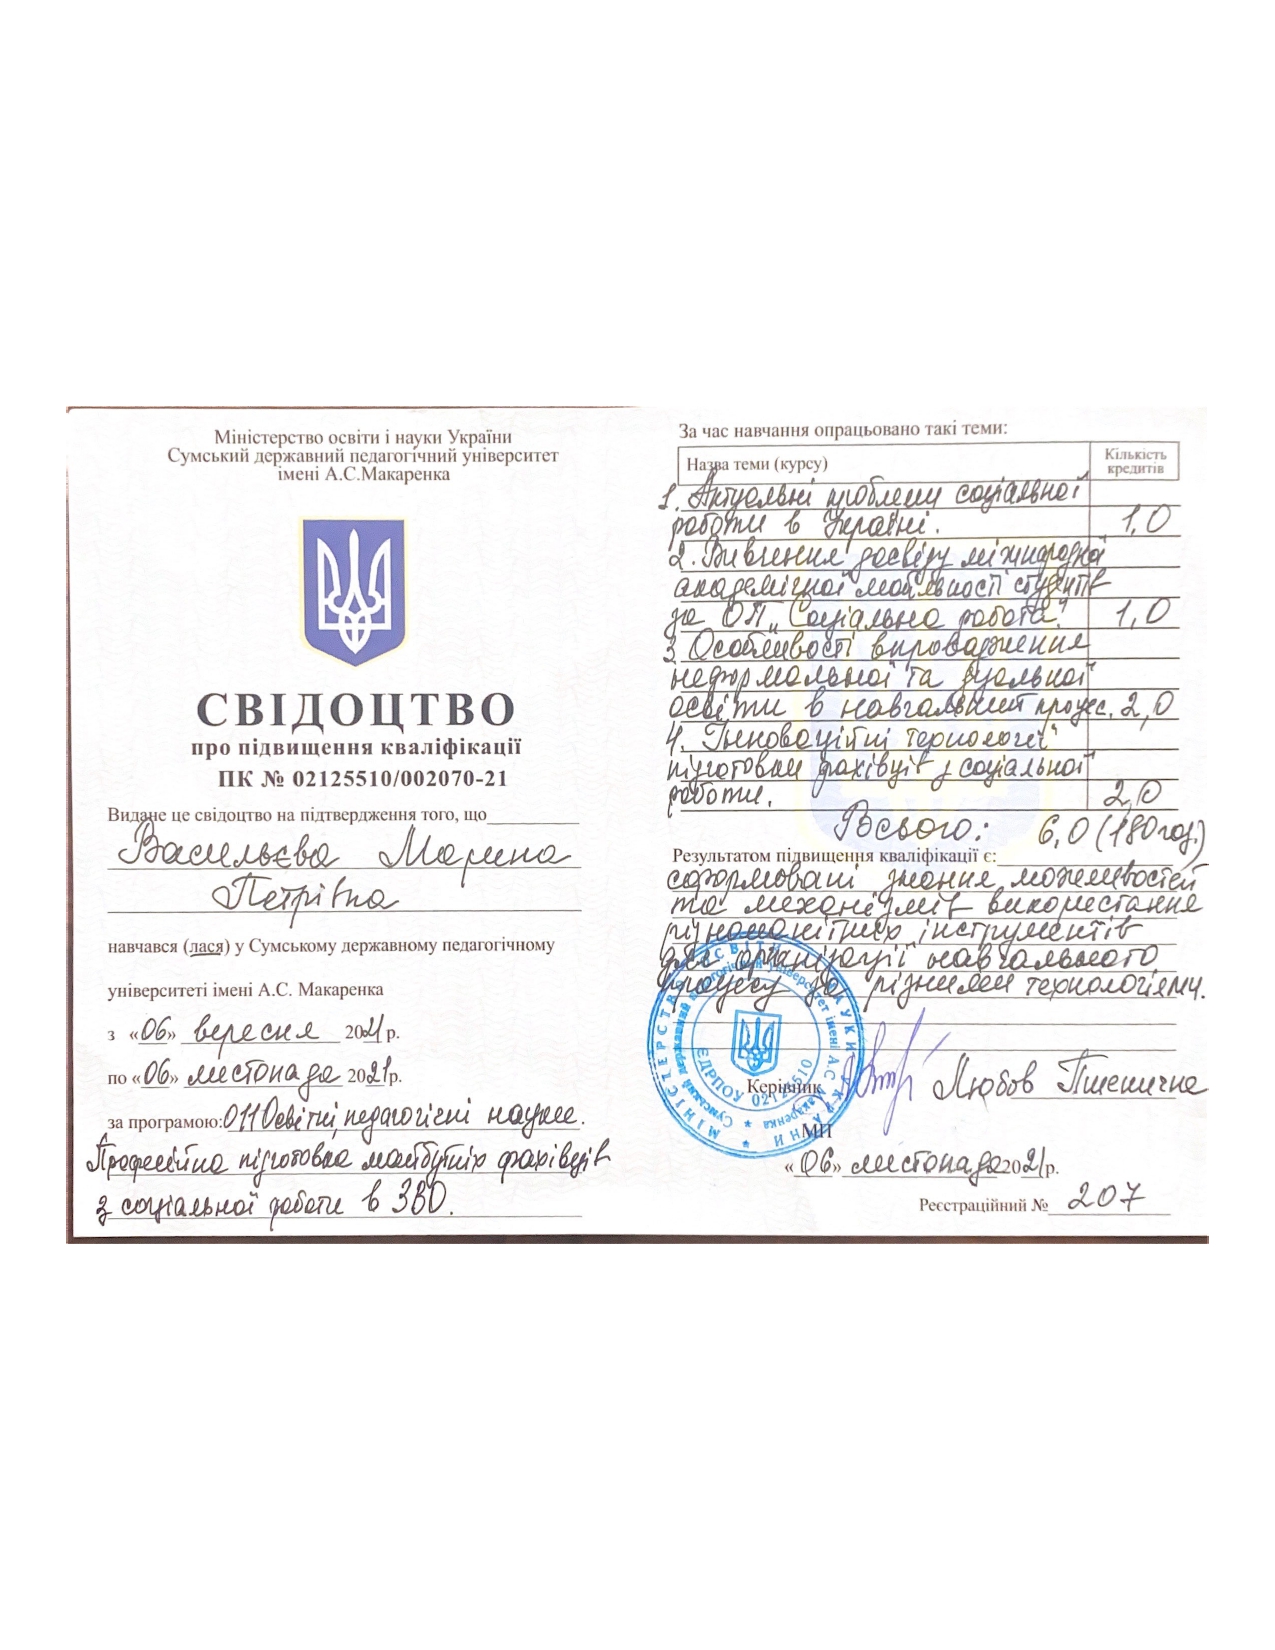 Міністерство освіти і науки України
Сумський державний педагогічний університет
імені А.С.Макаренка
СВІДОЦТВО
про підвищення кваліфікації
ПК № 02125510/002070-21
Видане це свідоцтво на підтвердження того, що
Васильєва Марина
Петрівна
навчався (лася) у Сумському державному педагогічному
університеті імені А.С. Макаренка
з «06» вересня 2021 р.
по «06» листопада 2021р.
за програмою: 011 Освітні, педагогічні науки.
Професійна підготовка майбутніх фахівців
з соціальної роботи в ЗВО.
За час навчання опрацьовано такі теми:
Назва теми (курсу) Кількість кредитів
1. Актуальні проблеми соціальної
роботи в Україні. 1,0
2. Вивчення досвіду міжнародної
академічної мобільності студентів
за ОП „Соціальна робота". 1,0
3. Особливості впровадження
неформальної та дуальної
освіти в навчальний процес. 2,0
4. Інноваційні технології
підготовки фахівців з соціальної
роботи. 2,0
Всього: 6,0 (180 год.)
Результатом підвищення кваліфікації є:
сформовані знання можливостей
та механізмів використання
різноманітних інструментів
для організації навчального
процесу за різними технологіями.
Керівник Любов Пшенична
МП
«06» листопада 2021р.
Реєстраційний № 207
МІНІСТЕРСТВО ОСВІТИ І НАУКИ УКРАЇНИ
Сумський державний педагогічний університет імені А.С.Макаренка
ЄДРПОУ 02125510